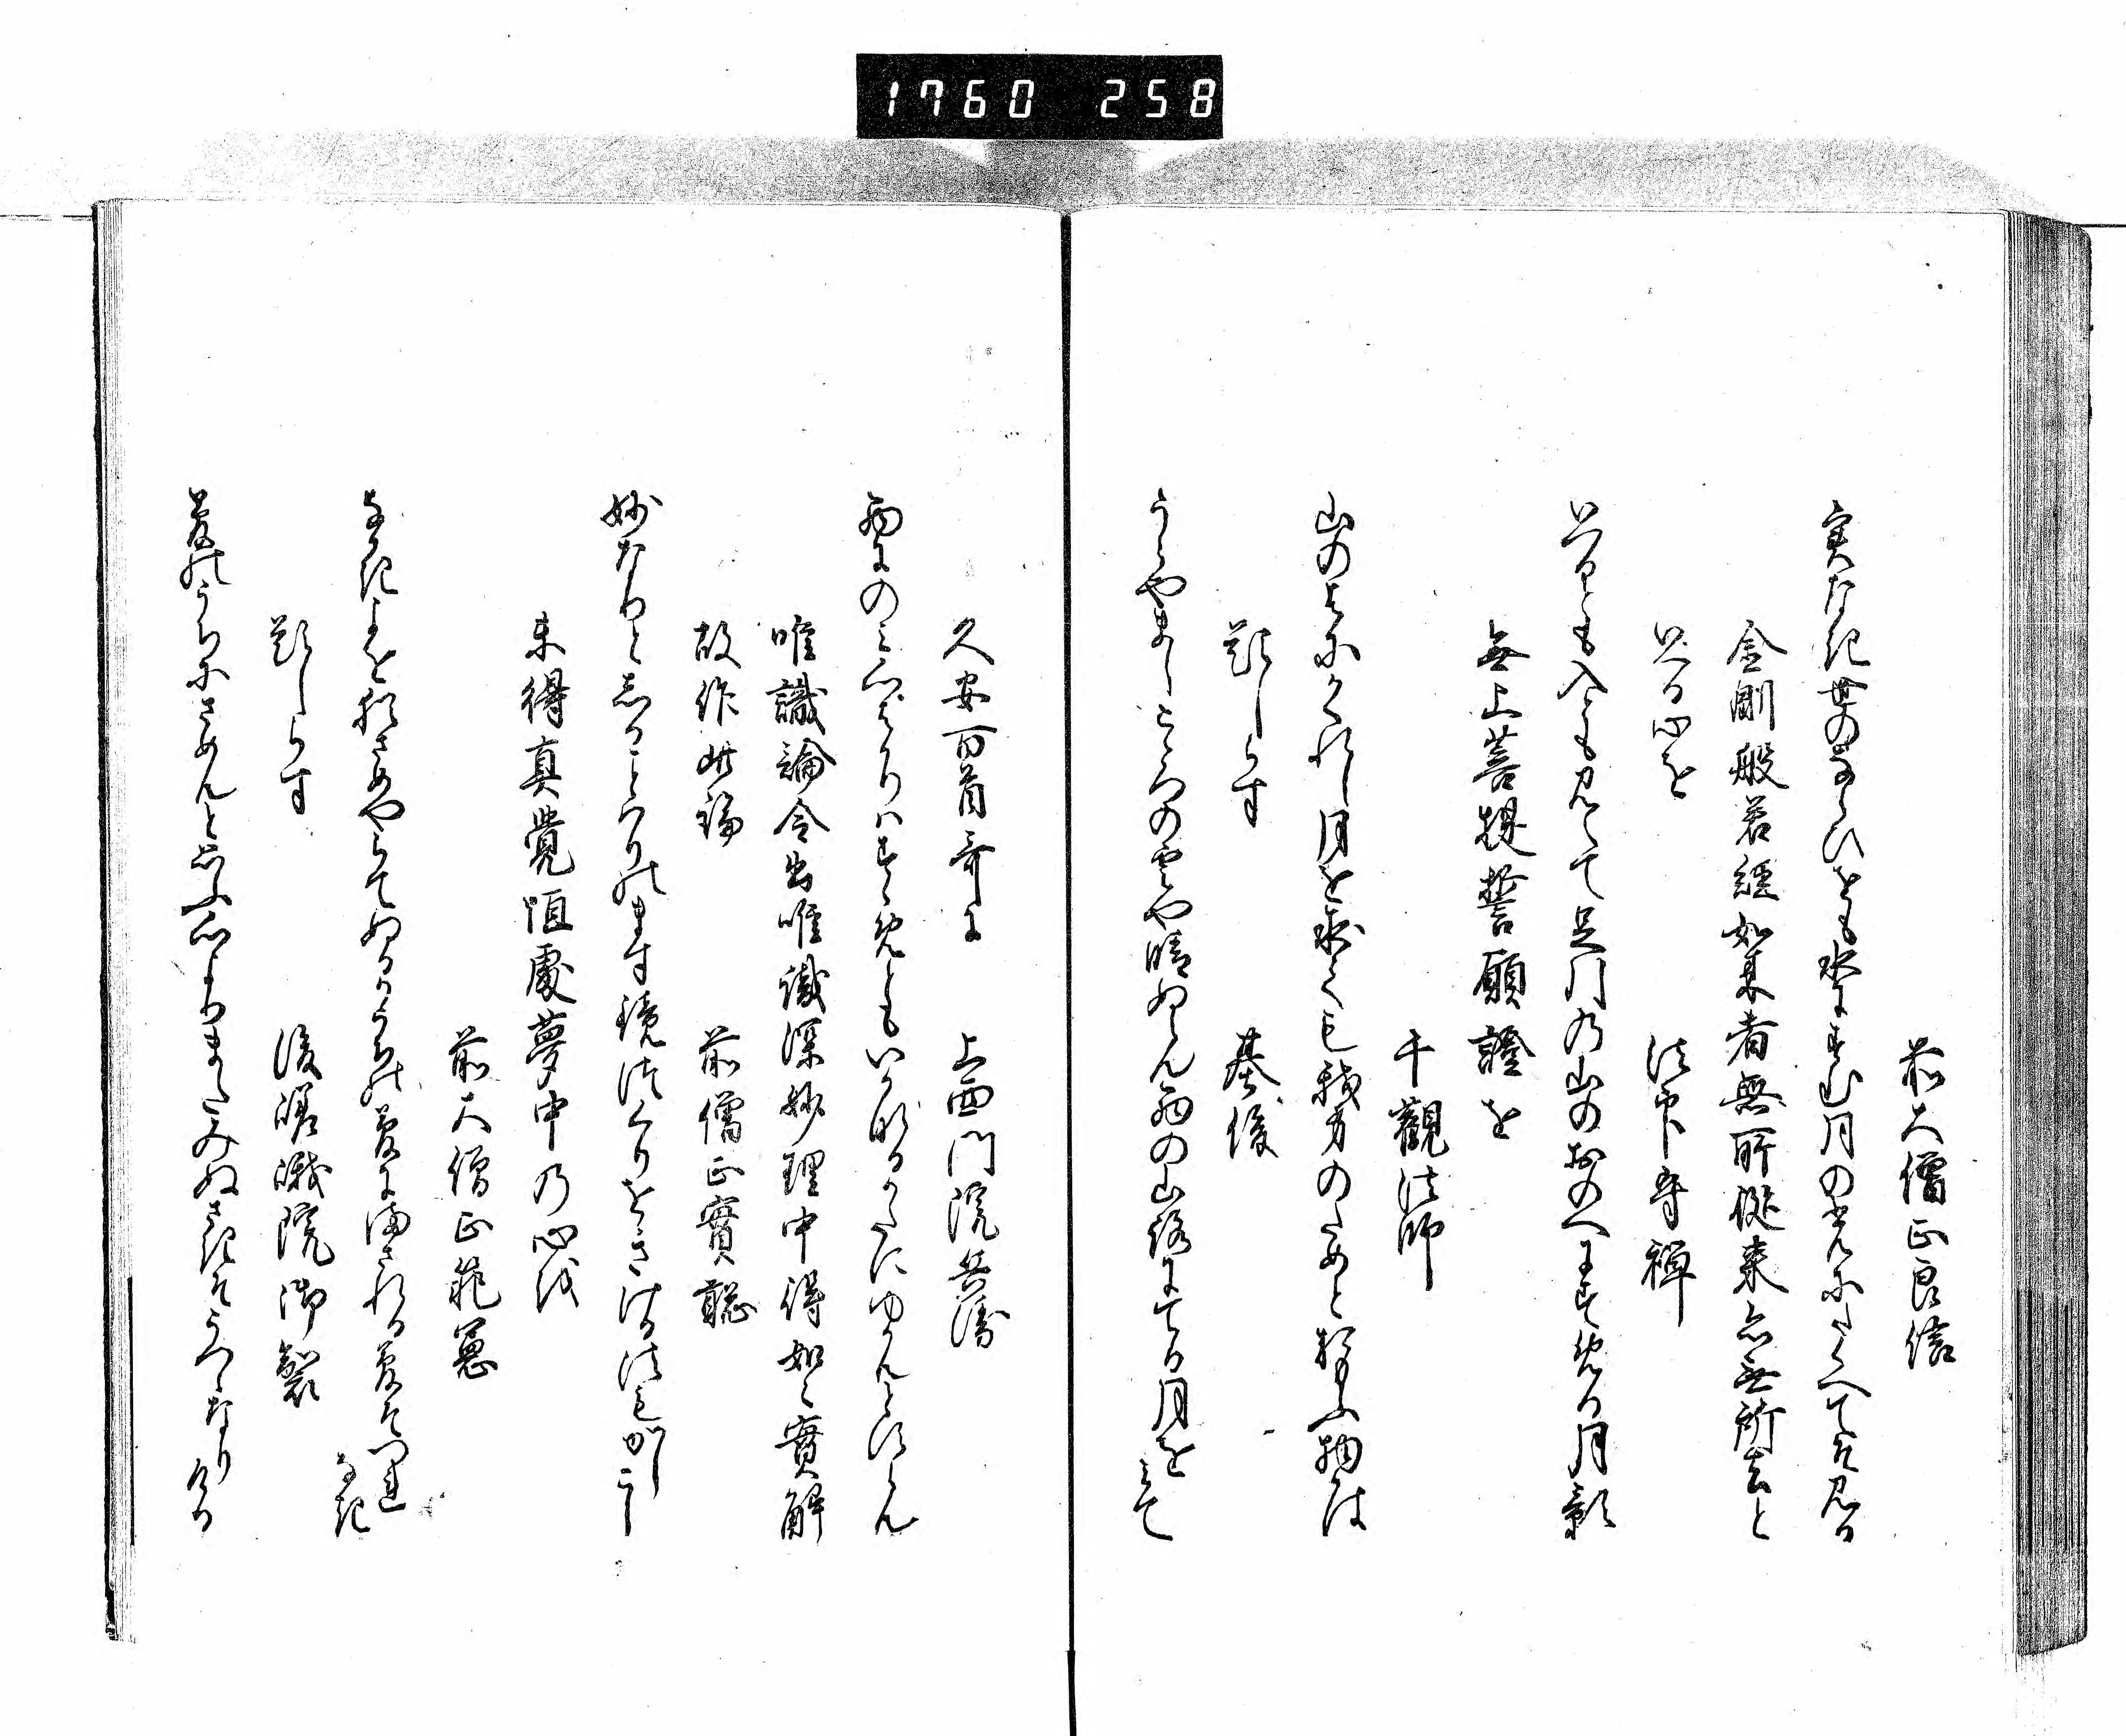 1760 258
前大僧正良信
実なき世のならひをも水にすむ月の光にたくへてそ見る
金剛般若経如来者無所従来亦無所去と
いへる心を
法印守禅
いつるとも入とも見えて足引の山のおのへにすめる月影
無上菩提誓願證を
千観法師
山のはにかくれし月を求ても我身のためとおもふ物かは
題しらす
基俊
うらやましこゝろの雲や晴ぬらん西の山路にてる月をみて
久安百首哥に
上西門院兵衛
西にのみ心はかりはすゝめともいかなるかたにゆかんとすらん
唯識論令出唯識深妙理中得如々實解
故作此論
前僧正實聡
妙なりとしることはりのます鏡はしめをきける法もかしこし
未得真覺恒處夢中の心を
前大僧正範憲
なかきよをねさめやらてぬるかうちの夢にまされる夢そつれなき
題しらす
後嵯峨院御製
夢のうちにさめんと思ふ心よりまたみぬさきそうつゝなりける